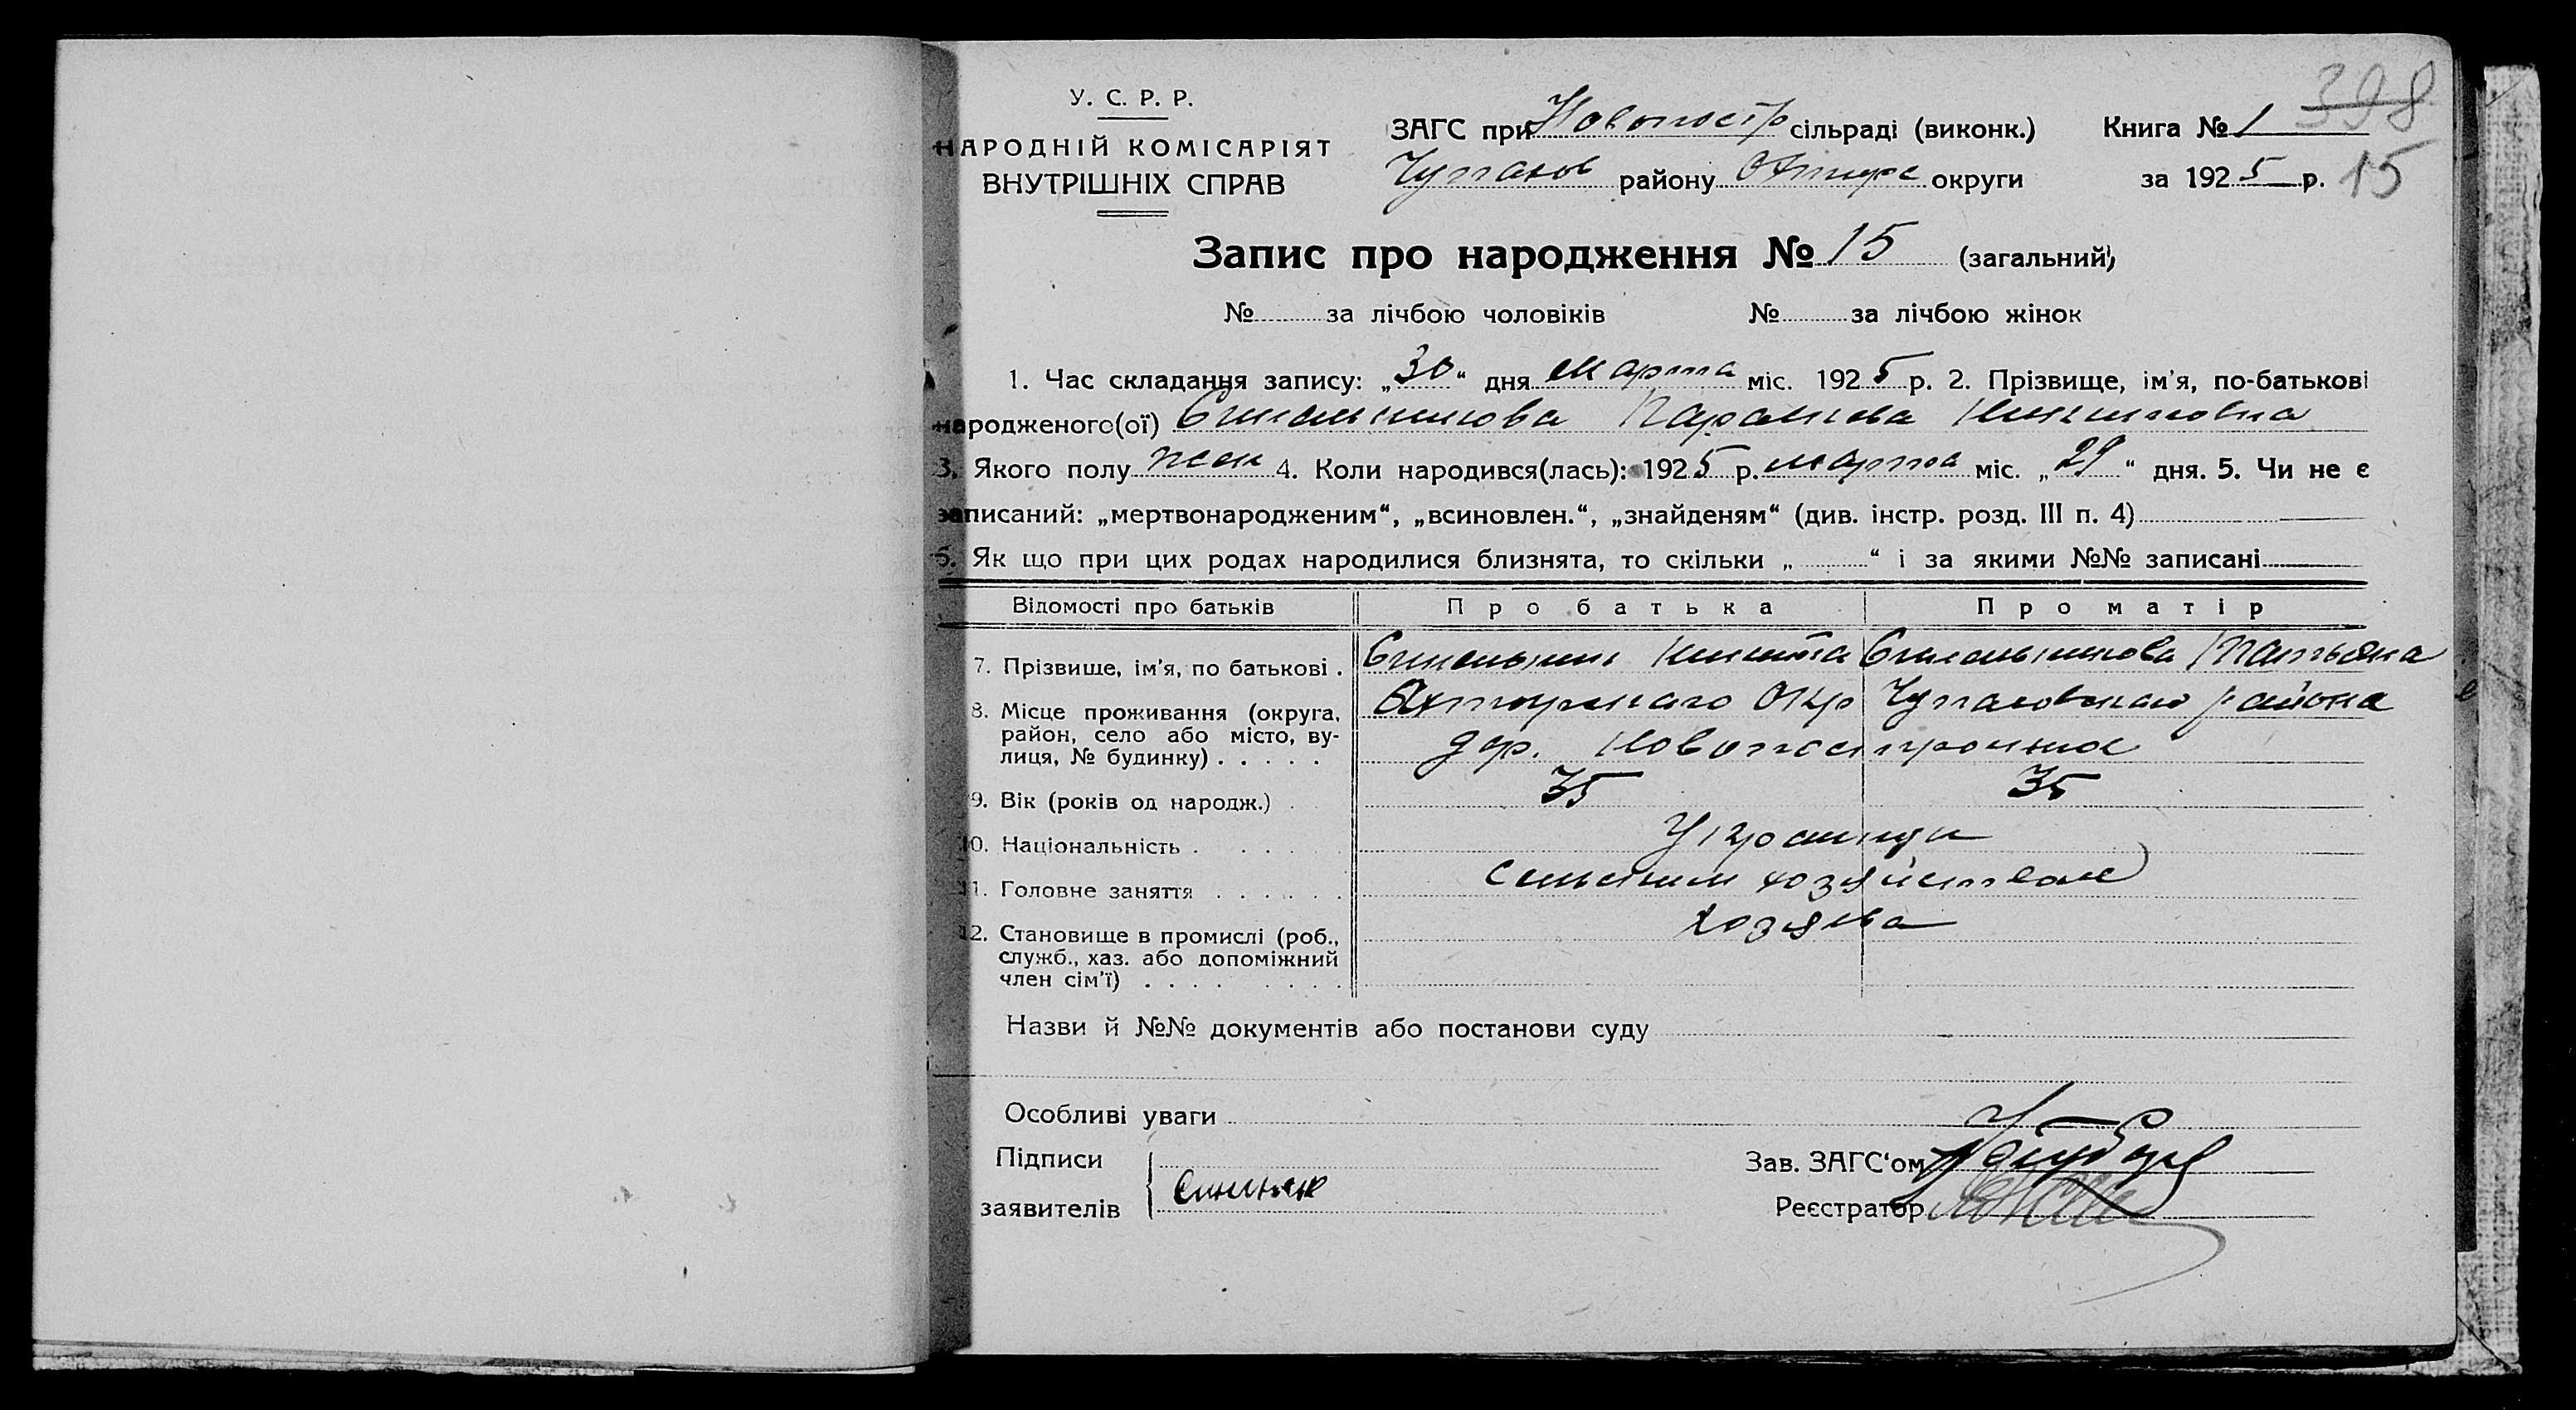 398
У. С. Р. Р.
НАРОДНІЙ КОМІСАРІЯТ
ВНУТРІШНІХ СПРАВ
ЗАГС при Новопостр сільраді (виконк.) Книга № 1
Чупахов району Охтирс округи за 1925 р. 15
Запис про народження № 15 (загальний)
№ за лічбою чоловіків № за лічбою жінок
1. Час складання запису: „30“ дня марта міс. 1925 р. 2. Прізвище, ім'я, по-батькові
народженого(ої) Синельникова Никитовна
3. Якого полу жен 4. Коли народився(лась): 1925 р. марта міс. „29“ дня. 5. Чи не є
записаний: „мертвонародженим“, „всиновлен.“, „знайденям“ (див. інстр. розд. III п. 4)
6. Як що при цих родах народилися близнята, то скільки „ “ і за якими №№ записані
Відомості про батьків Про батька Про матір
7. Прізвище, ім'я, по батькові . Никита Синельникова Татьяна
8. Місце проживання (округа, район, село або місто, вулиця, № будинку) . . . . . Окр района
дер.
9. Вік (років од народж.) . 35 35
10. Національність . . . . Украинци
11. Головне заняття . . . . . . Сельским хозяйством
12. Становище в промислі (роб., служб., хаз. або допоміжний член сім'ї) . . . . . . . . Хозяева
Назви й №№ документів або постанови суду
Особливі уваги
Підписи
заявителів
Зав. ЗАГС‘ом
Реєстратор